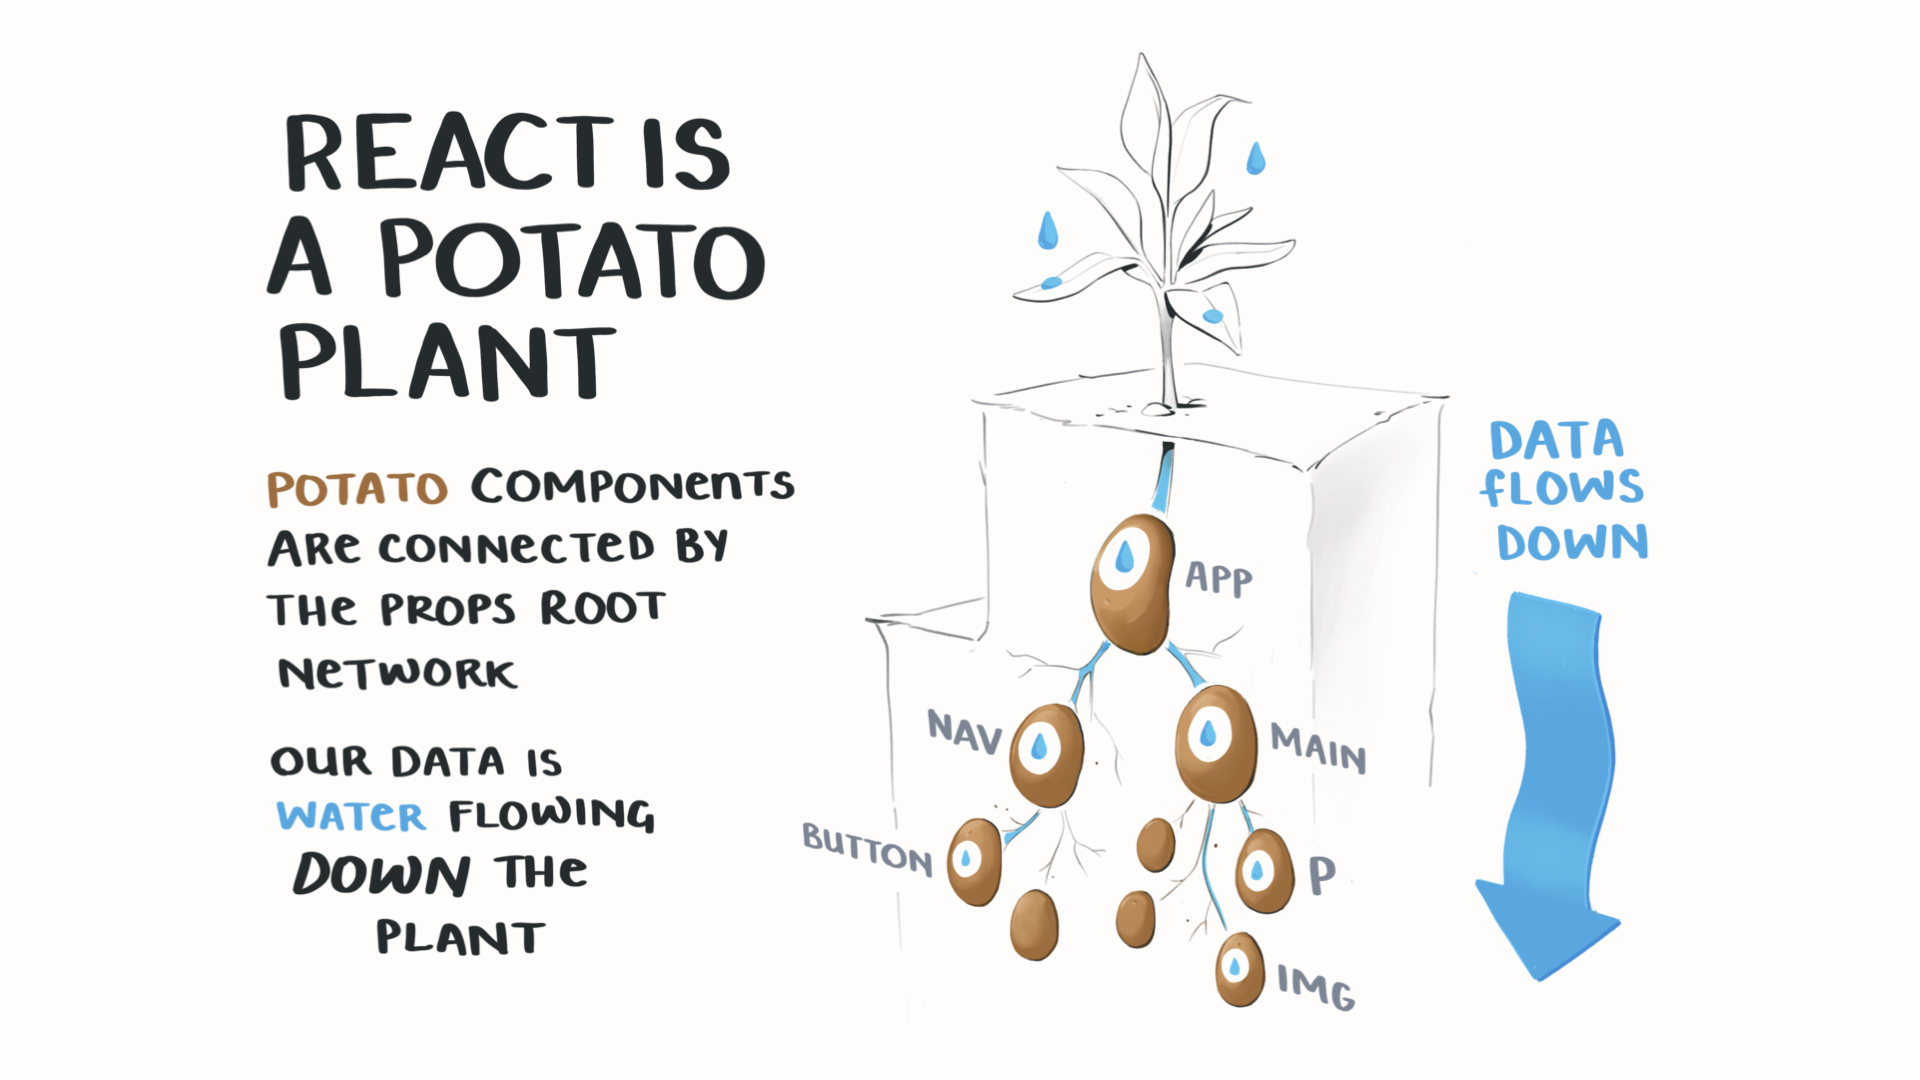 REACT IS
A POTATO
PLANT
POTATO COMPONENTS
ARE CONNECTED BY
THE PROPS ROOT
NETWORK
OUR DATA IS
WATER FLOWING
DOWN THE
PLANT
DATA
FLOWS
DOWN
APP
NAV
MAIN
BUTTON
P
IMG